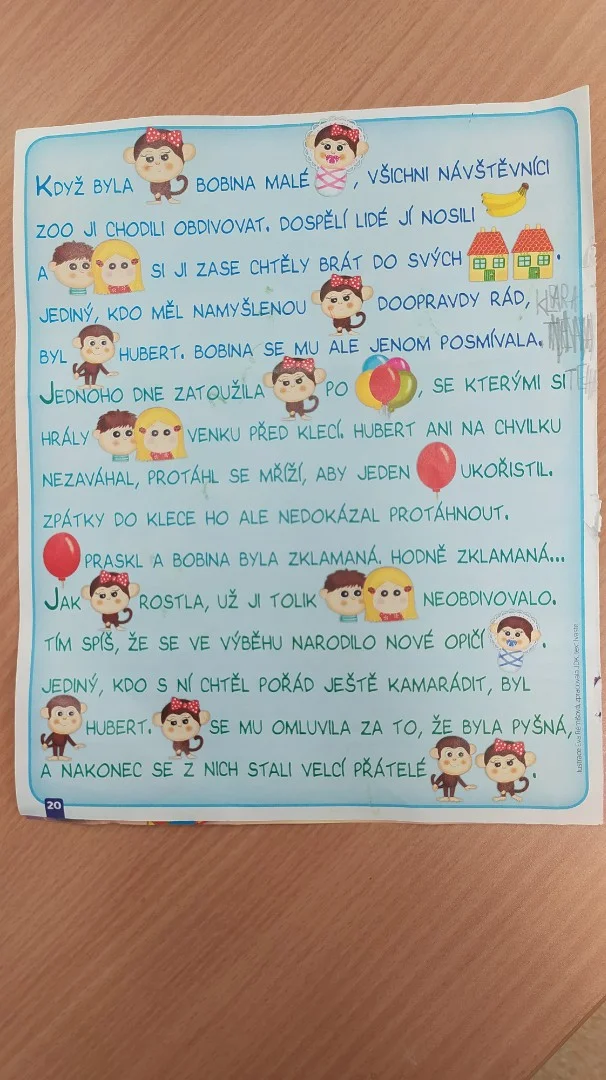 KDYŽ BYLA BOBINA MALÉ , VŠICHNI NÁVŠTĚVNÍCI
ZOO JI CHODILI OBDIVOVAT. DOSPĚLÍ LIDÉ JÍ NOSILI
A SI JI ZASE CHTĚLY BRÁT DO SVÝCH .
JEDINÝ, KDO MĚL NAMYŠLENOU DOOPRAVDY RÁD,
KLARA
BYL HUBERT. BOBINA SE MU ALE JENOM POSMÍVALA.
JEDNOHO DNE ZATOUŽILA PO , SE KTERÝMI SI
HRÁLY VENKU PŘED KLECÍ. HUBERT ANI NA CHVILKU
NEZAVÁHAL, PROTÁHL SE MŘÍŽÍ, ABY JEDEN UKOŘISTIL.
ZPÁTKY DO KLECE HO ALE NEDOKÁZAL PROTÁHNOUT.
PRASKL A BOBINA BYLA ZKLAMANÁ. HODNĚ ZKLAMANÁ...
JAK ROSTLA, UŽ JI TOLIK NEOBDIVOVALO.
TÍM SPÍŠ, ŽE SE VE VÝBĚHU NARODILO NOVÉ OPIČÍ .
JEDINÝ, KDO S NÍ CHTĚL POŘÁD JEŠTĚ KAMARÁDIT, BYL
HUBERT. SE MU OMLUVILA ZA TO, ŽE BYLA PYŠNÁ,
A NAKONEC SE Z NICH STALI VELCÍ PŘÁTELÉ .
20